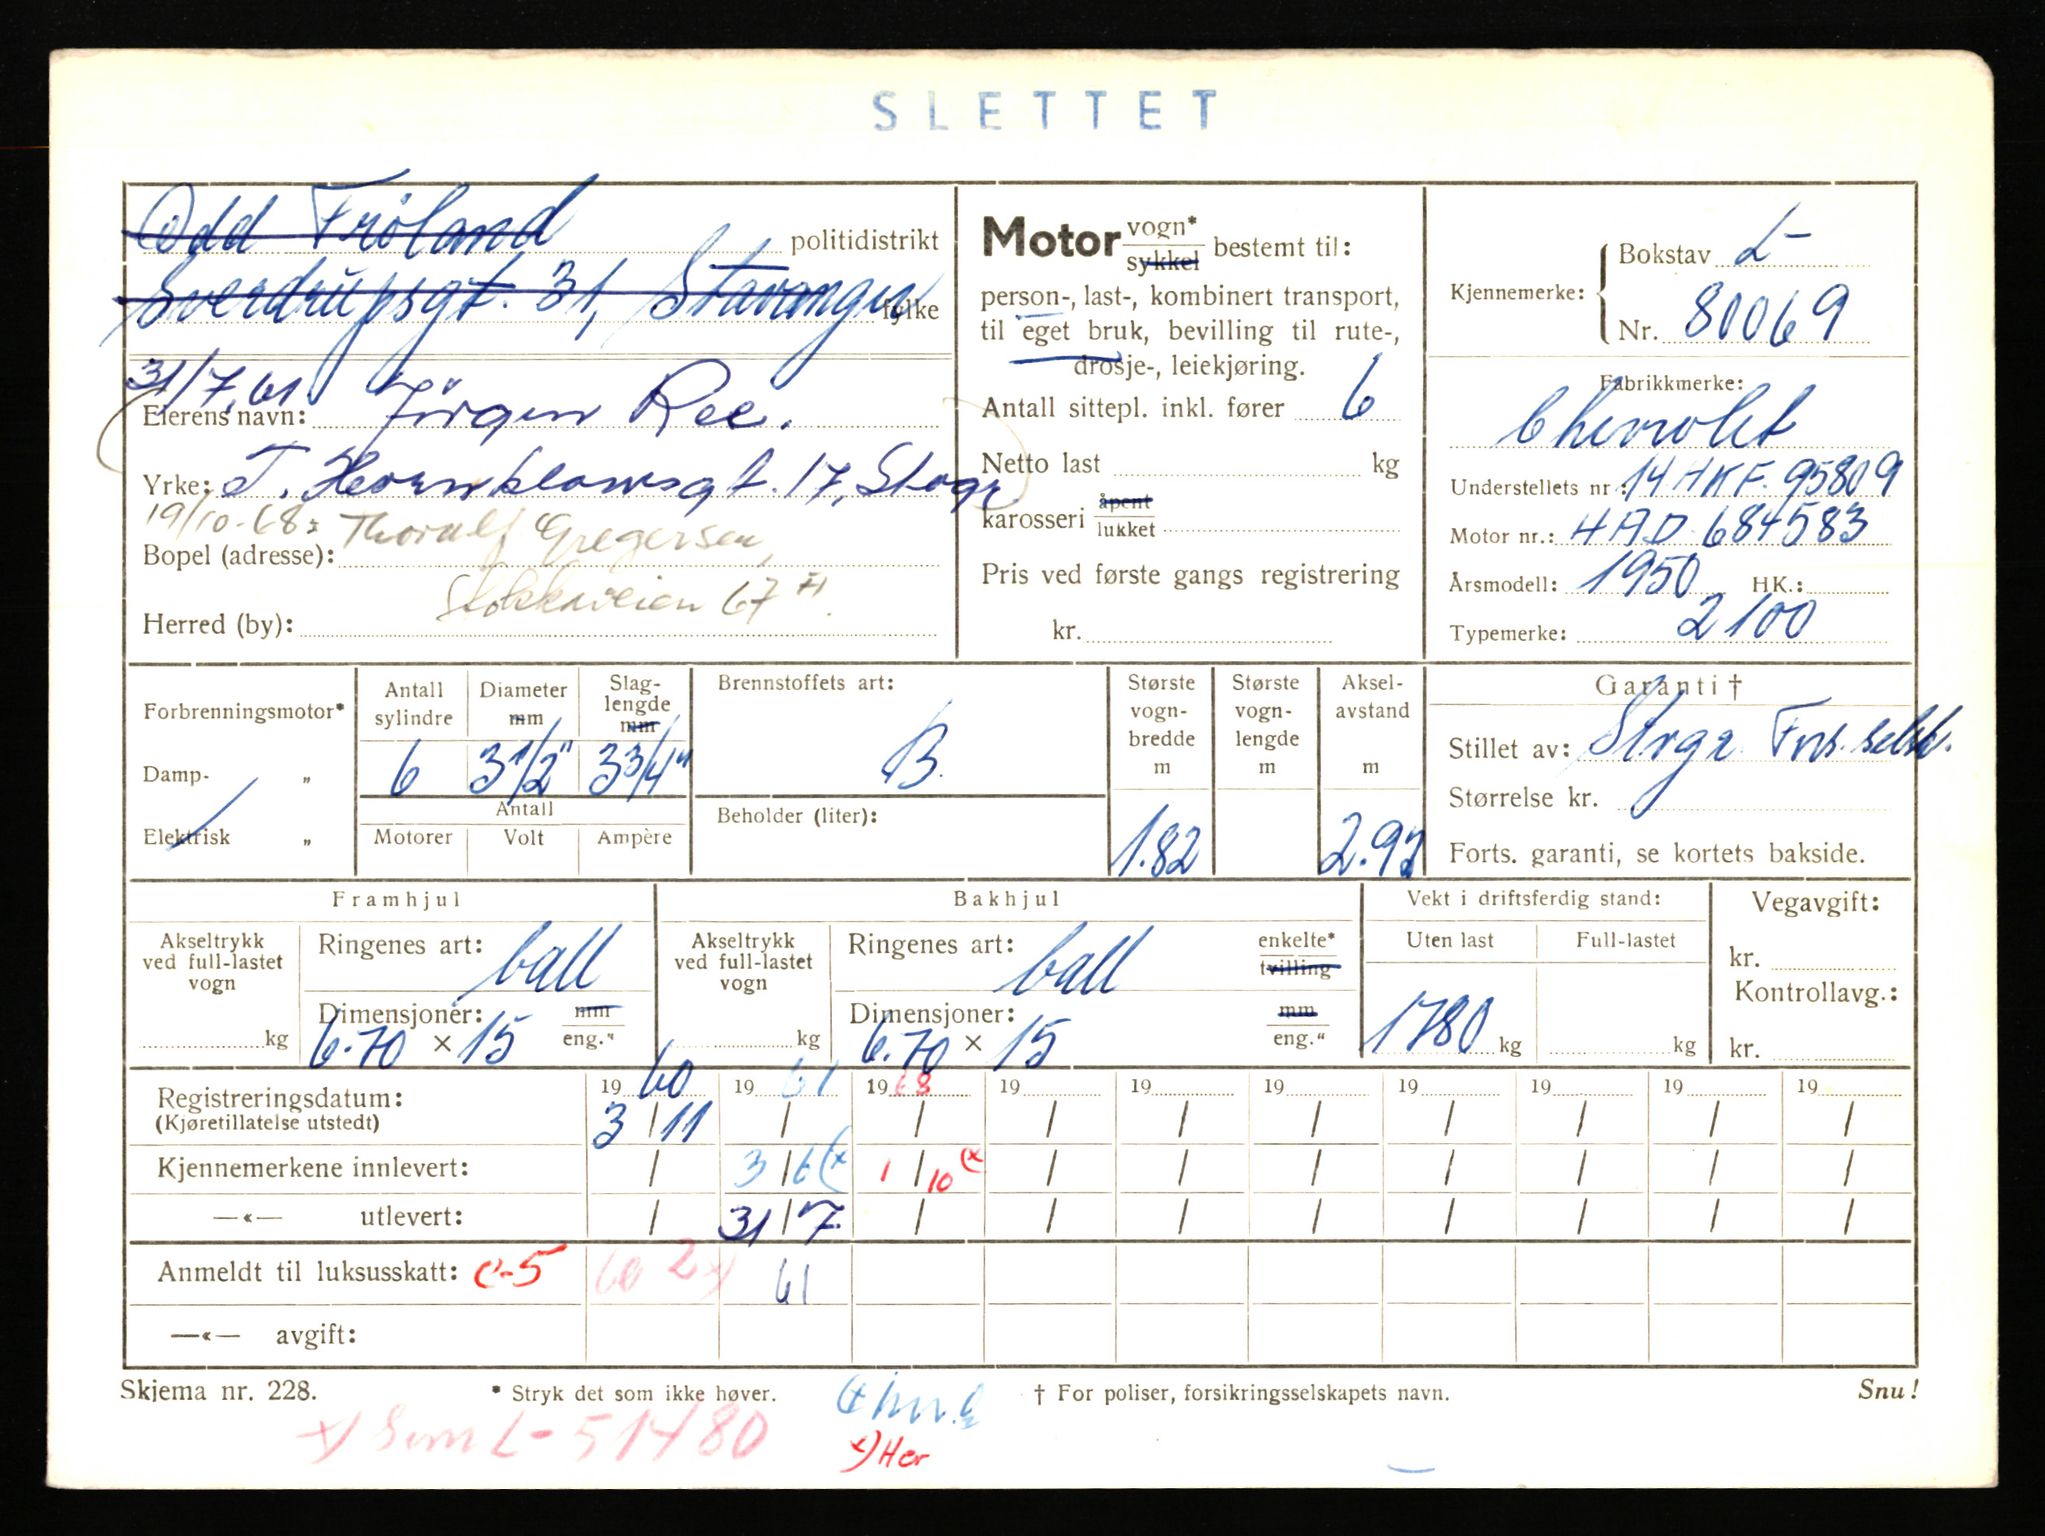 SLETTET
Odd Fröland politidistrikt
Sverdrupsgt. 31, Stavanger fylke
31/7,61
Eierens navn: Jörgen Ree.
Yrke: T. Hornklowsgt. 17, Stvgr
19/10-68: Thoralf Gregersen,
Bopel (adresse):
Stokkaveien 67 II
Herred (by):
Motor vogn* sykkel bestemt til:
person-, last-, kombinert transport,
til eget bruk, bevilling til rute-,
drosje-, leiekjøring.
Antall sittepl. inkl. fører 6
Netto last kg
karosseri åpent lukket
Pris ved første gangs registrering
kr.
Kjennemerke: Bokstav L-
Nr. 80069
Fabrikkmerke:
Chevrolet
Understellets nr.: 14 HKF. 95809
Motor nr.: HAD 684583
Årsmodell: 1950 HK.:
Typemerke: 2100
Forbrenningsmotor*
Damp- „
Elektrisk „
Antall sylindre 6
Diameter mm 3 1/2"
Slag-lengde mm 3 3/4"
Antall
Motorer Volt Ampère
Brennstoffets art:
B.
Beholder (liter):
Største vogn-bredde m 1.82
Største vogn-lengde m
Aksel-avstand m 2.92
Garanti †
Stillet av: Stvgr. Fors.selsk.
Størrelse kr.
Forts. garanti, se kortets bakside.
Framhjul
Akseltrykk ved full-lastet vogn kg
Ringenes art: ball
Dimensjoner: mm
6.70 × 15 eng."
Bakhjul
Akseltrykk ved full-lastet vogn kg
Ringenes art: ball enkelte* tvilling
Dimensjoner: mm
6.70 × 15 eng."
Vekt i driftsferdig stand:
Uten last Full-lastet
1780 kg kg
Vegavgift:
kr.
Kontrollavg.:
kr.
Registreringsdatum: 19 60 19 61 19 68 19 19 19 19 19 19 19
(Kjøretillatelse utstedt) 3/11 / / / / / / / / /
Kjennemerkene innlevert: / 3/6 (x 1/10 (x / / / / / / /
—«— utlevert: / 31/7. / / / / / / / /
Anmeldt til luksusskatt: C-5 60 2 x) 61
—«— avgift:
Skjema nr. 228. * Stryk det som ikke høver. † For poliser, forsikringsselskapets navn. Snu!
x) Som L-51480
x) Her